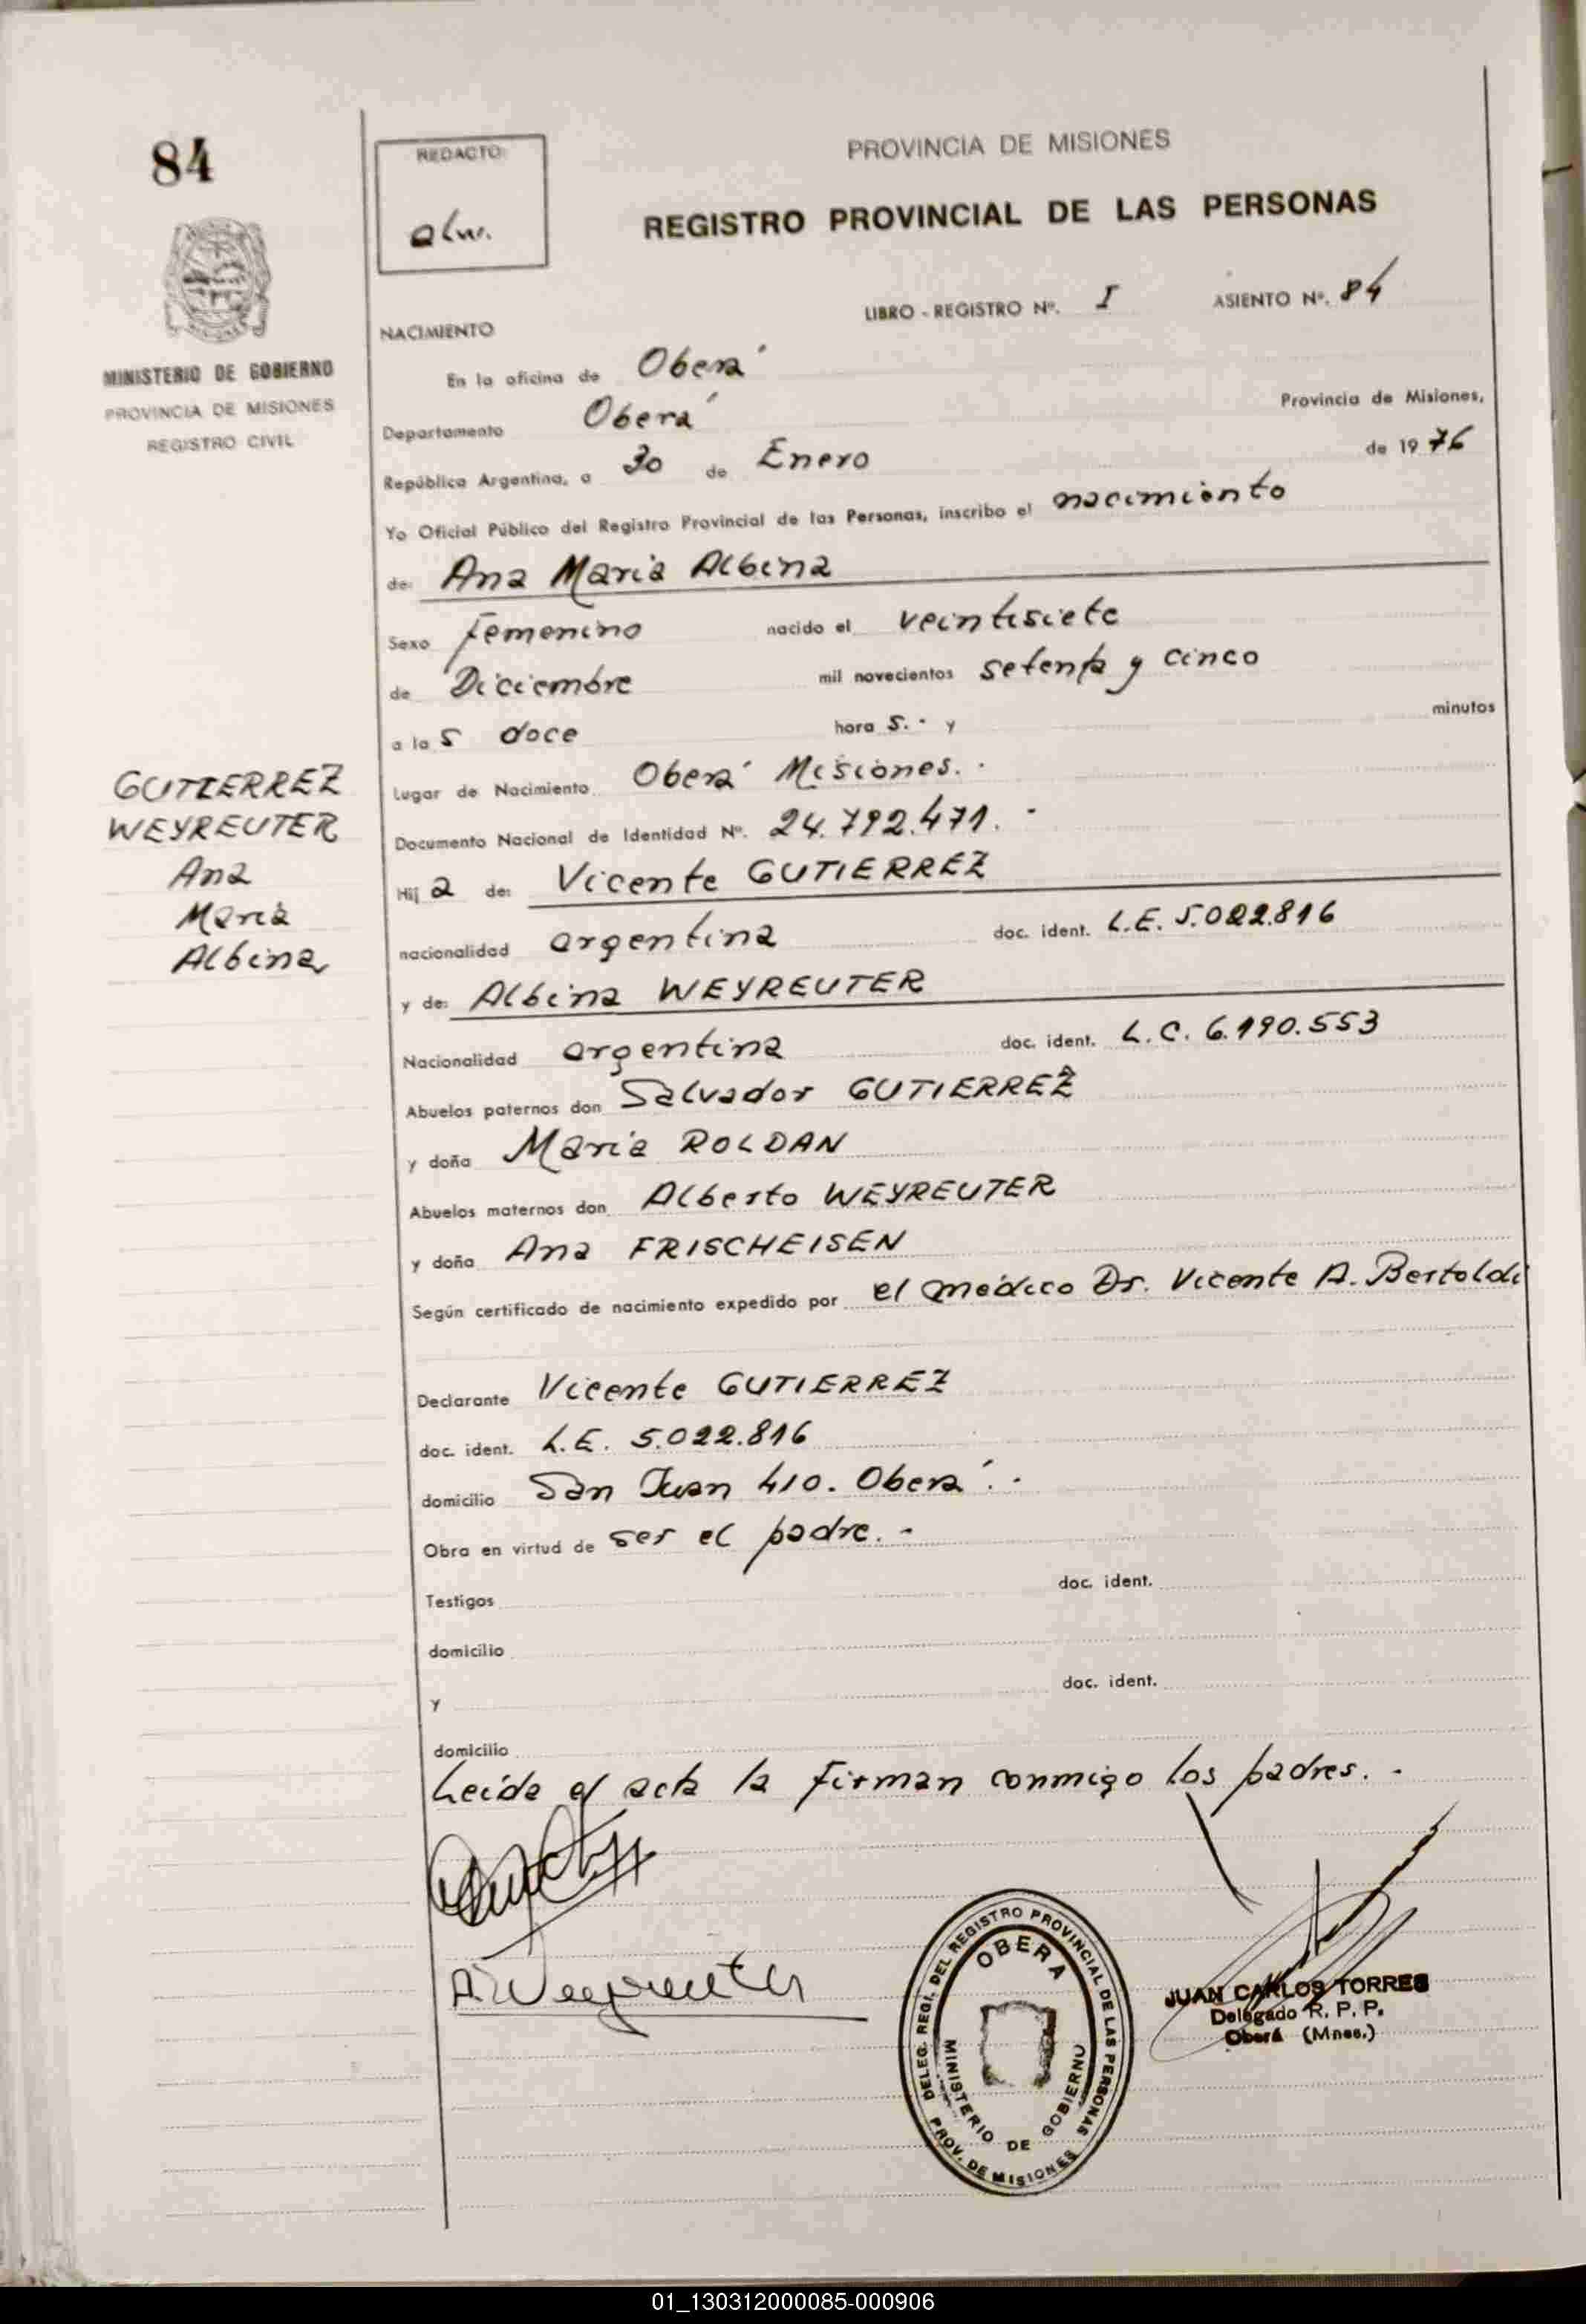 84
REDACTO:
PROVINCIA DE MISIONES
REGISTRO PROVINCIAL DE LAS PERSONAS
LIBRO - REGISTRO Nº. I ASIENTO Nº. 84
MINISTERIO DE GOBIERNO
PROVINCIA DE MISIONES
REGISTRO CIVIL
NACIMIENTO
En la oficina de Oberá
Departamento Oberá Provincia de Misiones,
República Argentina, a 30 de Enero de 1976
Yo Oficial Público del Registro Provincial de las Personas, inscribo el nacimiento
de: Ana Maria Albina
Sexo femenino nacido el veintisiete
de Diciembre mil novecientos setenta y cinco
a las doce horas.- y minutos
Lugar de Nacimiento Oberá Misiones.-
GUTIERREZ
WEYREUTER
Ana
Maria
Albina
Documento Nacional de Identidad Nº. 24.792.471.-
Hija de: Vicente GUTIERREZ
nacionalidad argentina doc. ident. L.E. 5.022.816
y de: Albina WEYREUTER
Nacionalidad argentina doc. ident. L.C. 6.190.553
Abuelos paternos don Salvador GUTIERREZ
y doña Maria ROLDAN
Abuelos maternos don Alberto WEYREUTER
y doña Ana FRISCHEISEN
Según certificado de nacimiento expedido por el médico Dr. Vicente A. Bertoldi
Declarante Vicente GUTIERREZ
doc. ident. L.E. 5.022.816
domicilio San Juan 410. Oberá.-
Obra en virtud de ser el padre.-
Testigos doc. ident.
domicilio
y doc. ident.
domicilio
Leida el acta la firman conmigo los padres.-
A Weyreuter
DELEG. REGI. DEL REGISTRO PROVINCIAL DE LAS PERSONAS
OBERA
MINISTERIO DE GOBIERNO
PROV. DE MISIONES
JUAN CARLOS TORRES
Delegado R. P. P.
Oberá (Mnes.)
01_130312000085-000906